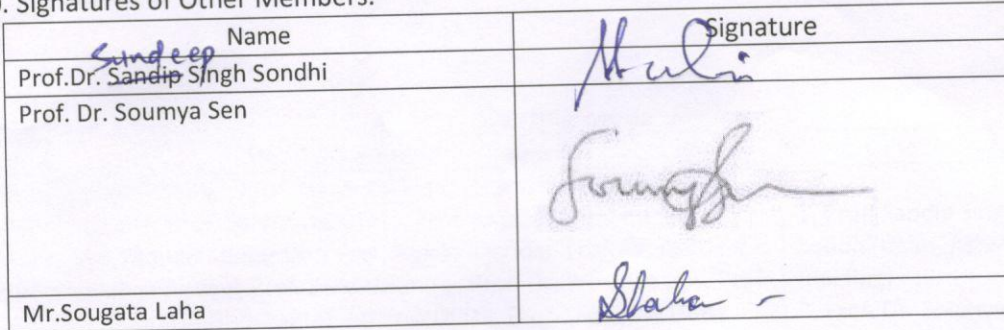 . Signatures of Other Members:
Name Signature
Sundeep
Prof.Dr. Sandip Singh Sondhi
Prof. Dr. Soumya Sen
Mr.Sougata Laha